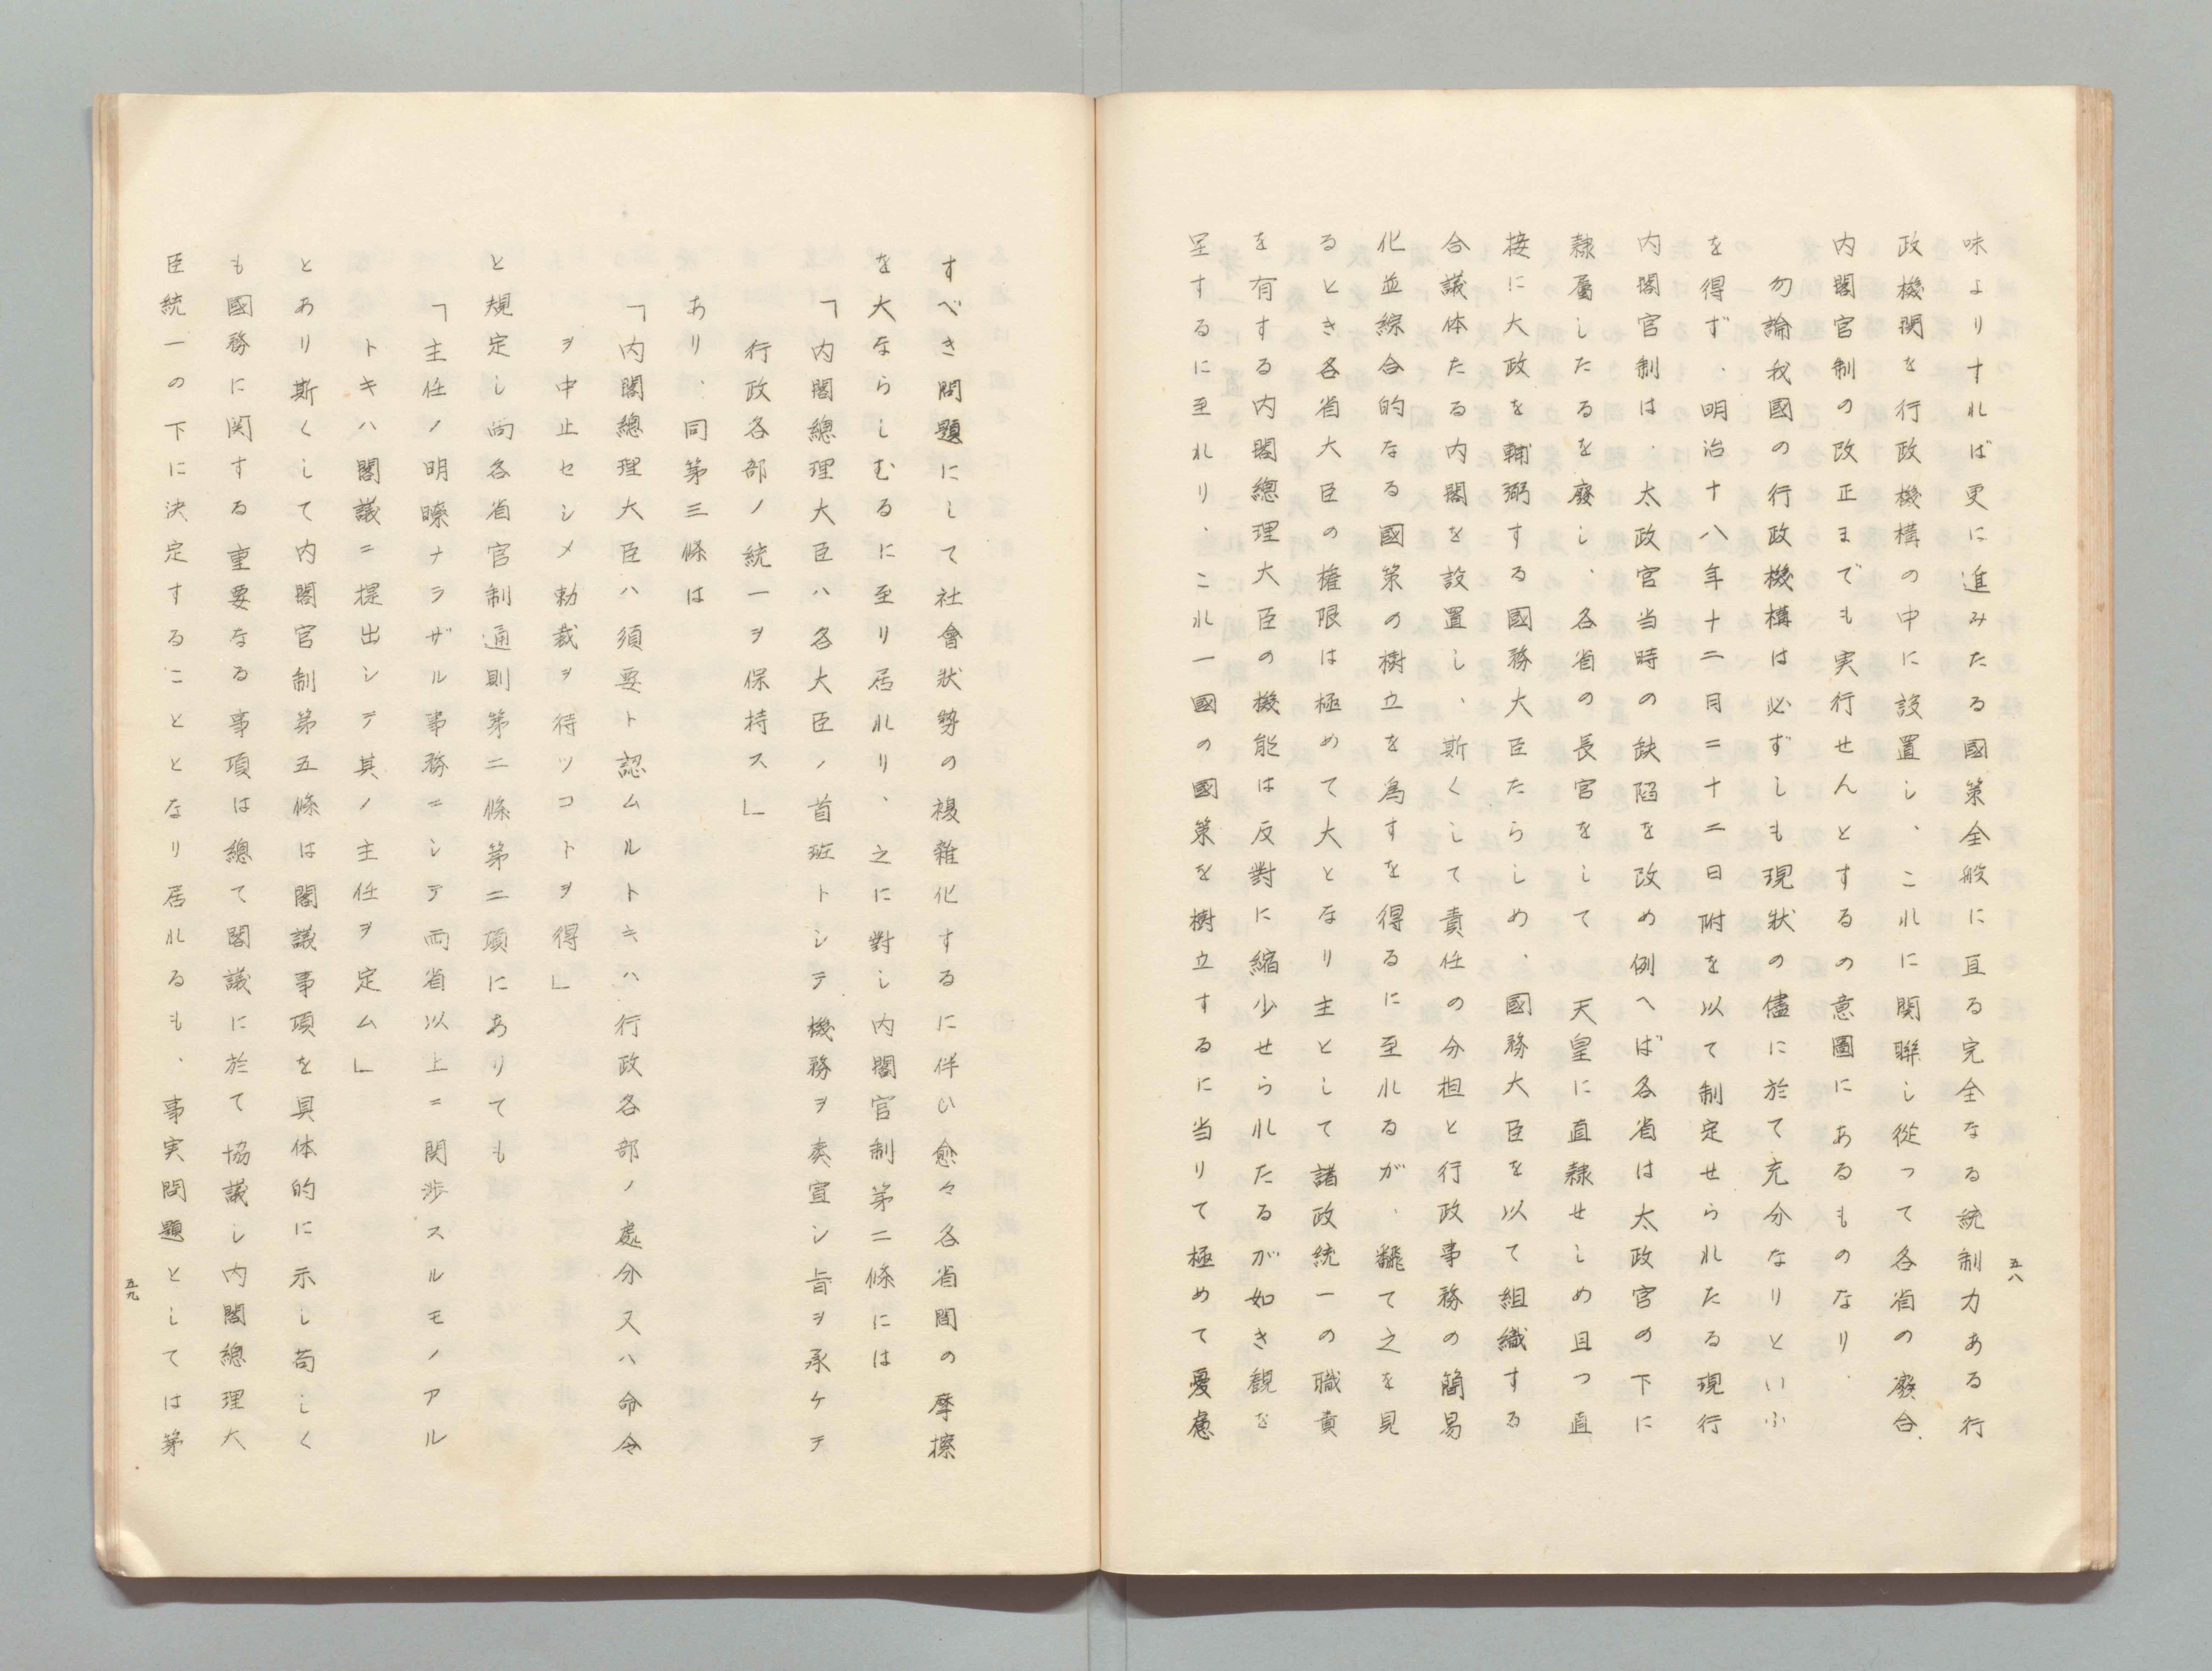 五八
味よりすれば更に進みたる國策全般に亘る完全なる統制力ある行
政機関を行政機構の中に設置し、これに関聯し従って各省の廢合、
内閣官制の改正までも実行せんとするの意圖にあるものなり、
勿論我國の行政機構は必ずしも現狀の儘に於て充分なりといふ
を得ず、明治十八年十二月二十二日附を以て制定せられたる現行
内閣官制は、太政官当時の缺陷を改め例へば各省は太政官の下に
隷屬したるを廢し、各省の長官をして　天皇に直隷せしめ且つ直
接に大政を輔弼する國務大臣たらしめ、國務大臣を以て組織する
合議体たる内閣を設置し、斯くして責任の分担と行政事務の簡易
化並綜合的なる國策の樹立を爲すを得るに至れるが、飜て之を見
るとき各省大臣の権限は極めて大となり主として諸政統一の職責
を有する内閣總理大臣の機能は反對に縮少せられたるが如き観を
呈するに至れり、これ一國の國策を樹立するに当りて極めて憂慮
すべき問題にして社會狀勢の複雜化するに伴ひ愈々各省間の摩擦
を大ならしむるに至り居れり、之に對し内閣官制第二條には
「内閣總理大臣ハ各大臣ノ首班トシテ機務ヲ奏宣シ旨ヲ承ケテ
行政各部ノ統一ヲ保持ス」
あり、同第三條は
「内閣總理大臣ハ須要ト認ムルトキハ行政各部ノ處分又ハ命令
ヲ中止セシメ勅裁ヲ待ツコトヲ得」
と規定し尚各省官制通則第二條第二項にありても
「主任ノ明瞭ナラザル事務ニシテ両省以上ニ関渉スルモノアル
トキハ閣議ニ提出シテ其ノ主任ヲ定ム」
とあり斯くして内閣官制第五條は閣議事項を具体的に示し苟しく
も國務に関する重要なる事項は總て閣議に於て協議し内閣總理大
臣統一の下に決定することとなり居れるも、事実問題としては第
五九